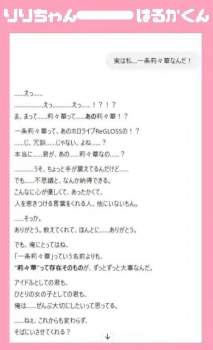 りりちゃん
はるかくん
実は私....一条莉々華なんだ！
……えっ……
………………えっ…………えっ…！？！？
ま、まって……莉々華って……あの莉々華！？
一条莉々華って、あのホロライブReGLOSSの！？
……じ、冗談……じゃない、よね……？
本当に……君が、あの……莉々華なの……？
…………うそ、ちょっと手が震えてるんだけど……
でも……不思議と、なんか納得できる。
こんなに心が優しくて、あったかくて、
人を惹きつける言葉をくれる人、他にいないもん。
……そっか。
ありがとう。教えてくれて、ほんとに……ありがとう。
でも、俺にとってはね、
「一条莉々華」っていう名前よりも、
"莉々華"って存在そのものが、ずっとずっと大事なんだ。
アイドルとしての君も、
ひとりの女の子としての君も、
俺は……ぜんぶ大切にしたいって思ってる。
……ねぇ、これからも変わらず、
そばにいさせてくれる？